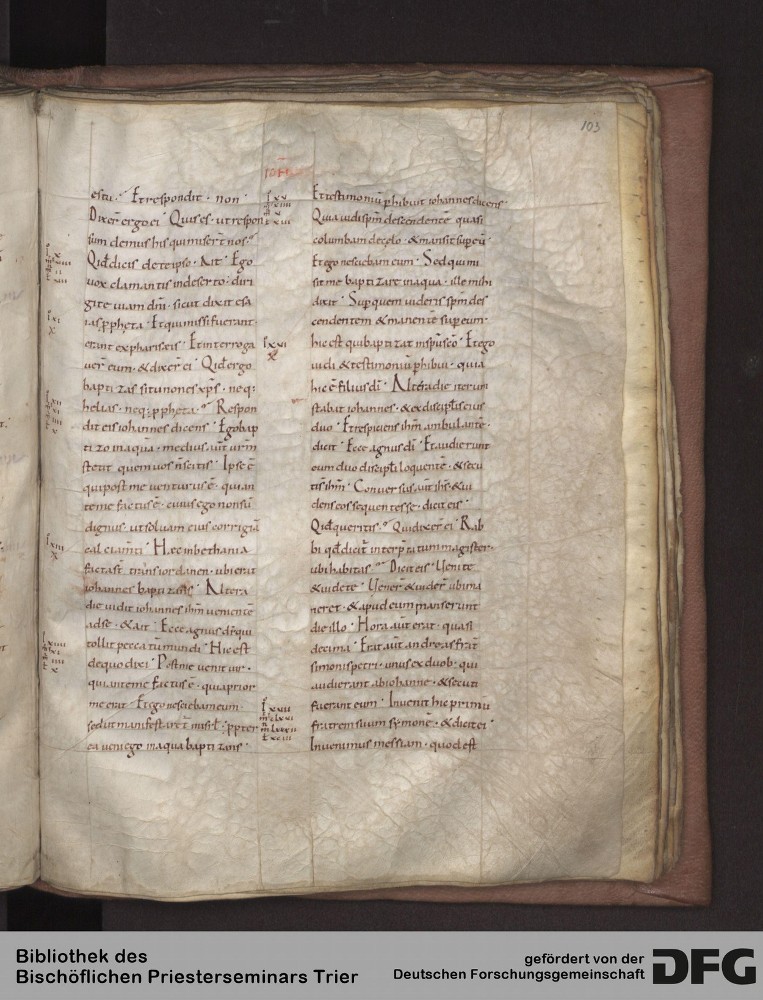 103
IOH
es tu · Et respondit · non ·
Dixer̄ ergo ei · Quis es · ut respon
sum demus his qui miser̄t nos ·
Quid dicis de te ipso · Ait · Ego
uox clamantis in deserto · diri
gite uiam dn̄i · sicut dixit esa
ias ꝓpheta · Et qui missi fuerant ·
erant ex phariseis · Et interroga
uer̄ eum · & dixer̄ ei · Quid ergo
baptizas si tu non es xp̄s · neq;
helias · neq; ꝓpheta · Respon
dit eis iohannes dicens · Ego bap
tizo in aqua · medius aut̄ ur̄m
stetit quem uos n̄ scitis · Ipse ē
qui post me uenturus ē · qui an
te me factus ē · cuius ego non sū
dignus · ut soluam eius corrigiā
calciam̄ti · Haec in bethania
facta st̄ trans iordanen · ubi erat
iohannes baptizans · Altera
die uidit iohannes ihm̄ uenientē
ad se · & ait · Ecce agnus dī · qui
tollit peccatū mundi · Hic est
de quo dixi · Post me uenit uir ·
qui ante me factus ē · quia prior
me erat · Et ego nesciebam eum ·
sed ut manifestaret̄ in isrl̄ · ꝓpter
ea ueni ego in aqua baptizans ·
Et testimoniū ꝑhibuit iohannes dicens
Quia uidi sp̄m descendentē quasi
columbam de celo · & mansit sup̄ eū ·
Et ego nesciebam eum · Sed qui mi
sit me baptizare in aqua · ille mihi
dixit · Sup̄ quem uideris sp̄m des
cendentem & manentē sup̄ eum ·
hic est qui baptizat in sp̄u scō · Et ego
uidi & testimoniū ꝑhibui · quia
hic ē filius dī · Altera die iterum
stabat iohannes · & ex discipl̄is eius
duo · Et respiciens ihm̄ ambulantē ·
dicit · Ecce agnus dī · Et audierunt
eum duo discipl̄i loquentē · & secu
ti s̄ ihm̄ · Conuersus aut̄ ihs̄ · & ui
dens eos sequentes se · dicit eis ·
Quid queritis · Qui dixer̄ ei · Rab
bi qd̄ dicit̄ interp̄tatum magister ·
ubi habitas · Dicit eis · Uenite
& uidete · Uener̄ & uider̄ ubi ma
neret · & apud eum manserunt
die illo · Hora aut̄ erat · quasi
decima · Erat aut̄ andreas frat̄
simonis petri · unus ex duob · qui
audierant ab iohanne · & secuti
fuerant eum · Inuenit hic primū
fratrem suum symonē · & dicit ei ·
Inuenimus messiam · quod est
Bibliothek des
Bischöflichen Priesterseminars Trier
gefördert von der
Deutschen Forschungsgemeinschaft
DFG